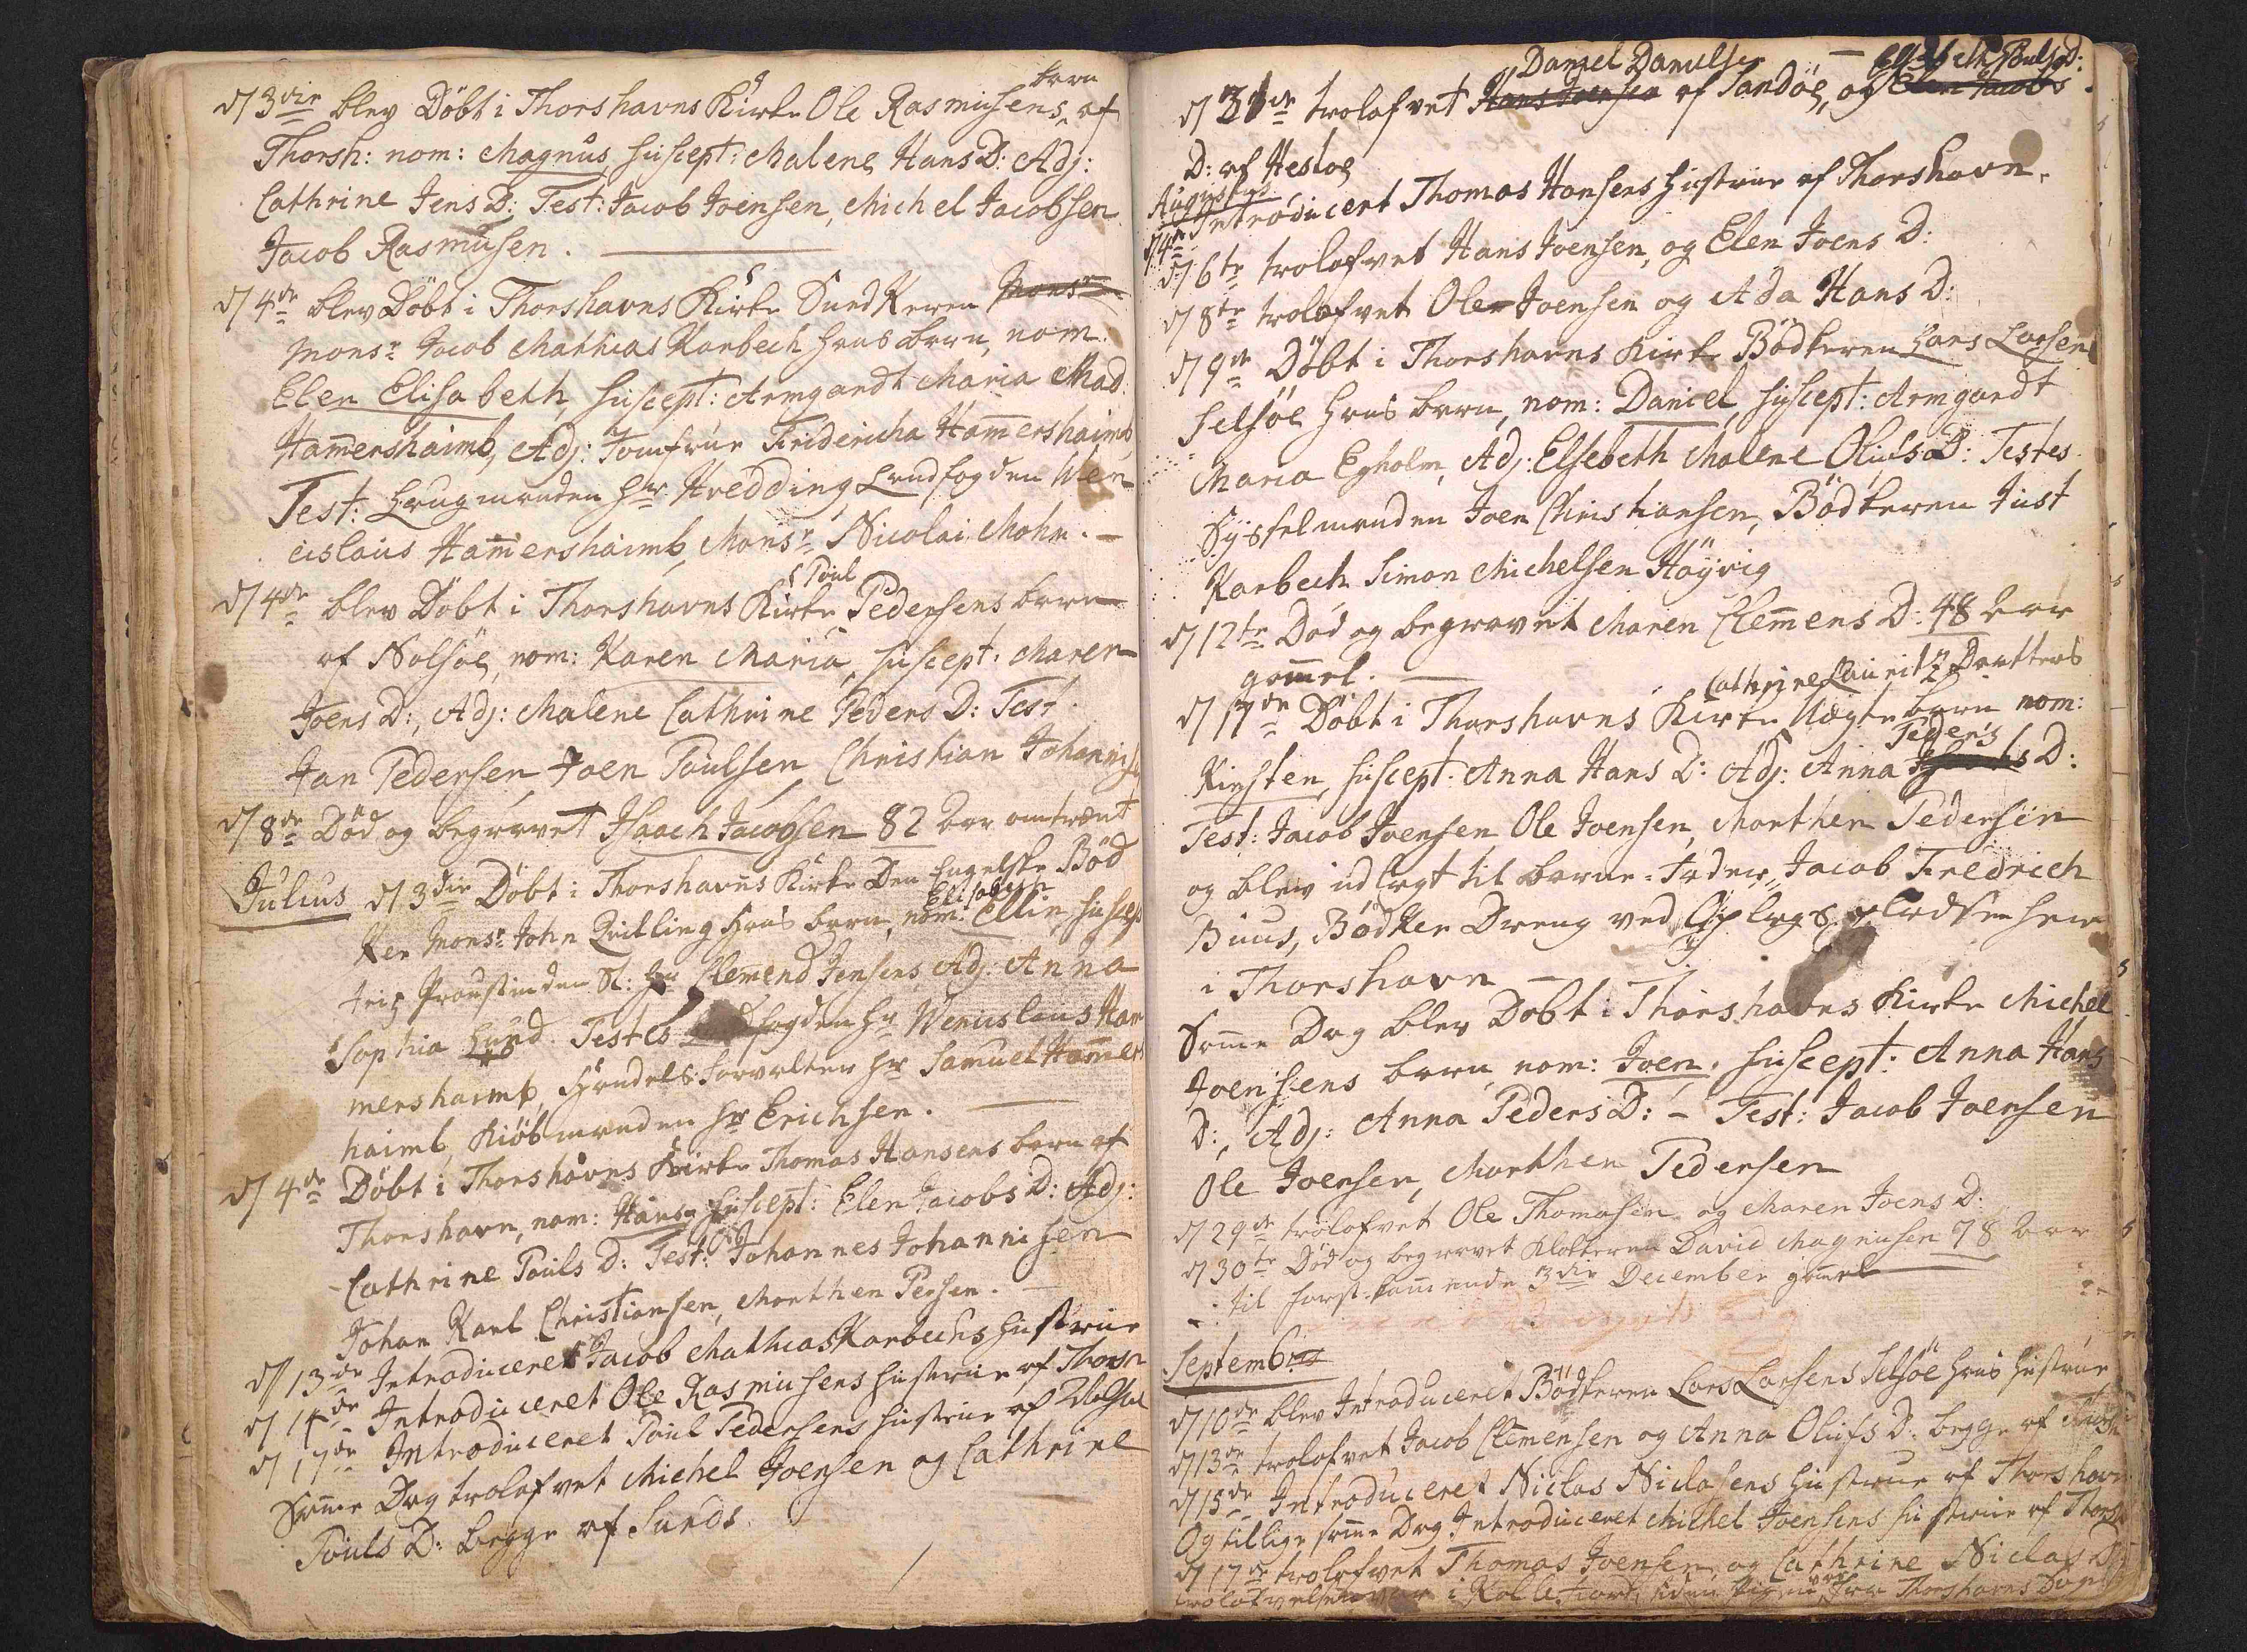 d/ 3die blev Döbt i Thorshavns Kirke Ole Rasmusens barn af
Thorsh: nom: Magnus, suscept: Malene Hans D: Adj:
Cathrine Jens D: Test: Jacob Joensen, Michel Jacobsen
Jacob Rasmusen.
d/ 4de blev Döbt i Thorshavns Kirke Sundkeren Monsr
Monsr Jacob Mathias Karbech hans barn, nom.
Elen Elisabeth, suscept: Armgardt Maria Mad.
Hammershaimb, Adj: Jomfrue Fridericha Hammershaimb,
Test: Laugmanden Hr Hvedding Landfogden Wen
ceslaus Hammershaimb, Monsr Nicolai Mohr. –
d/ 4de blev Döbt i Thorshavns Kirke Poul Pedersens barn
af Nolsöe, nom: Karen Maria, suscept: Maren
Joens D:, Adj: Malene Cathrine Peders D: Test.
Jan Pedersen, Joen Poulsen, Christian Johannis
d/ 8de Död og begravet Isaach Jacobsen 82 Aar omtrent
Julius d/ 3die Döbt i Thorshavns Kirke Den Engelske Böd
ker Monsr John Quilling hans barn, nom: Elisabeth Ellin, suscept
Provstinden Sl: Hr Clemend Jensens, Adj: Anna
Sophia Lund. Testes Landfogden Hr Wenceslaus Ham
mershaimb, Handels-forvalter Hr Samuel Hammers
haimb, Kiöbmanden Hr Erichsen.
d/ 4de Döbt i Thorshavns Kirke Thomas Hansens barn af
Thorshavn, nom: Hans, suscept: Elen Jacobs D: Adj:
Cathrine Pouls D: Test: Johannes Johannisen
Johan Karl Christiansen, Morthen Persen. –
d/ 13de Introduceret Jacob Mathias Karbechs Hustrue
d/ 14de Introduceret Ole Rasmusens Hustrue af Thorsh
d/ 17de Introduceret Poul Pedersens Hustrue af Nolsöe
Samme Dag trolofvet Michel Joensen og Cathrine
Pouls D: begge af Sundt.
Daniel Danielsen – Elsebeth Pouls D:
d/ 31te trolofvet Hans Joensen af Sandöe, og Elen Jacobs
D: af Hestöe
Augustus
d/ 4de Introducert Thomas Hansens Hustrue af Thorshavn.
d/ 6te trolofvet Hans Joensen, og Elen Joens D:
d/ 8te trolofvet Ole Joensen og Ada Hans D:
d/ 9de Döbt i Thorshavns Kirke Bödkeren Hans Larsen
Selsöe hans barn, nom: Daniel, suscept: Armgardt
Maria Egholm, Adj: Elsebeth Malene Olufs D: Testes
Sysselmanden Joen Christiansen, Bödkeren Just
Karbech Simon Michelsen Höyvig
d/ 12te Död og begravet Maren Clemmens D: 48 Aar
gammel. –
Cathrine Lauritz Daatters
d/ 17de Döbt i Thorshavns Kirke Uægte barn nom:
Kirsten, suscept: Anna Hans D: Adj: Anna Peders D:
Test: Jacob Joensen, Ole Joensen, Morthen Pedersen
og blev udlagt til barne-Fader, Jacob Fredrich
Buus, Bödker Dreng ved Oplags pladsen her
i Thorshavn –
Samme Dag blev Döbt i Thorshavns Kirke Michel
Joensens barn nom: Joen, suscept: Anna Hans
D:, Adj: Anna Peders D: – Test: Jacob Joensen
Ole Joensen, Morthen Pedersen
d/ 29de trolofvet Ole Thomasen og Maren Joens D:
d/ 30te Död og begravet Klokkeren David Magnusen 78 Aar
til forst-kommende 3die December gammel
Septembris
d/ 10de blev Introduceret Bödkeren Lars Larsens Selsöe hans Hustrue
d/ 13de trolofvet Jacob Clemensen og Anna Olufs D: begge af
d/ 15de Introduceret Niclas Niclasens Hustrue af Thorshavn
Og tillige samme Dag Introduceret Michel Joensens Hustrue af Thorsh
d/ 17de trolofvet Thomas Joensen, og Cathrine Niclas D:
trolofvelsen var i Kollefiord, var fra Thorshavns